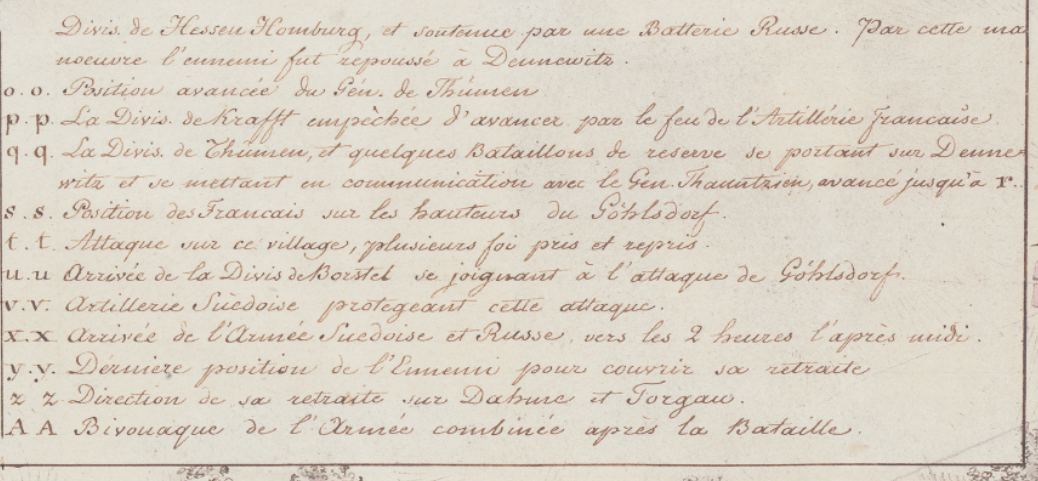 Divis. de Hessen Homburg, et soutenue par une Batterie Russe. Par cette ma
noeuvre l'ennemi fut repoussé à Dennewitz.
o. o. Position avancée du Gén. de Thümen
p. p. La Divis. de Krafft empêchée d'avancer par le feu de l'Artillérie francaise.
q. q. La Divis. de Thümen, et quelques Bataillons de reserve se portant sur Denne-
witz et se mettant en communication avec le Gen. Thauntzien, avancé jusqu'à r..
s. s. Position des Francais sur les hauteurs du Göhlsdorf.
t. t. Attaque sur ce village, plusieurs foi pris et repris.
u. u Arrivée de la Divis de Borstel se joignant à l'attaque de Göhlsdorf.
v. v. Artillerie Suèdoise protegeant cette attaque.
x. x Arrivée de l'Armée Suedoise et Russe, vers les 2 heures l'après midi.
y. y. Derniere position de l'Ennemi pour couvrir sa retraite
z z Direction de sa retraite sur Dahme et Torgau.
A A Bivouaque de l'Armée combinée après la Bataille.